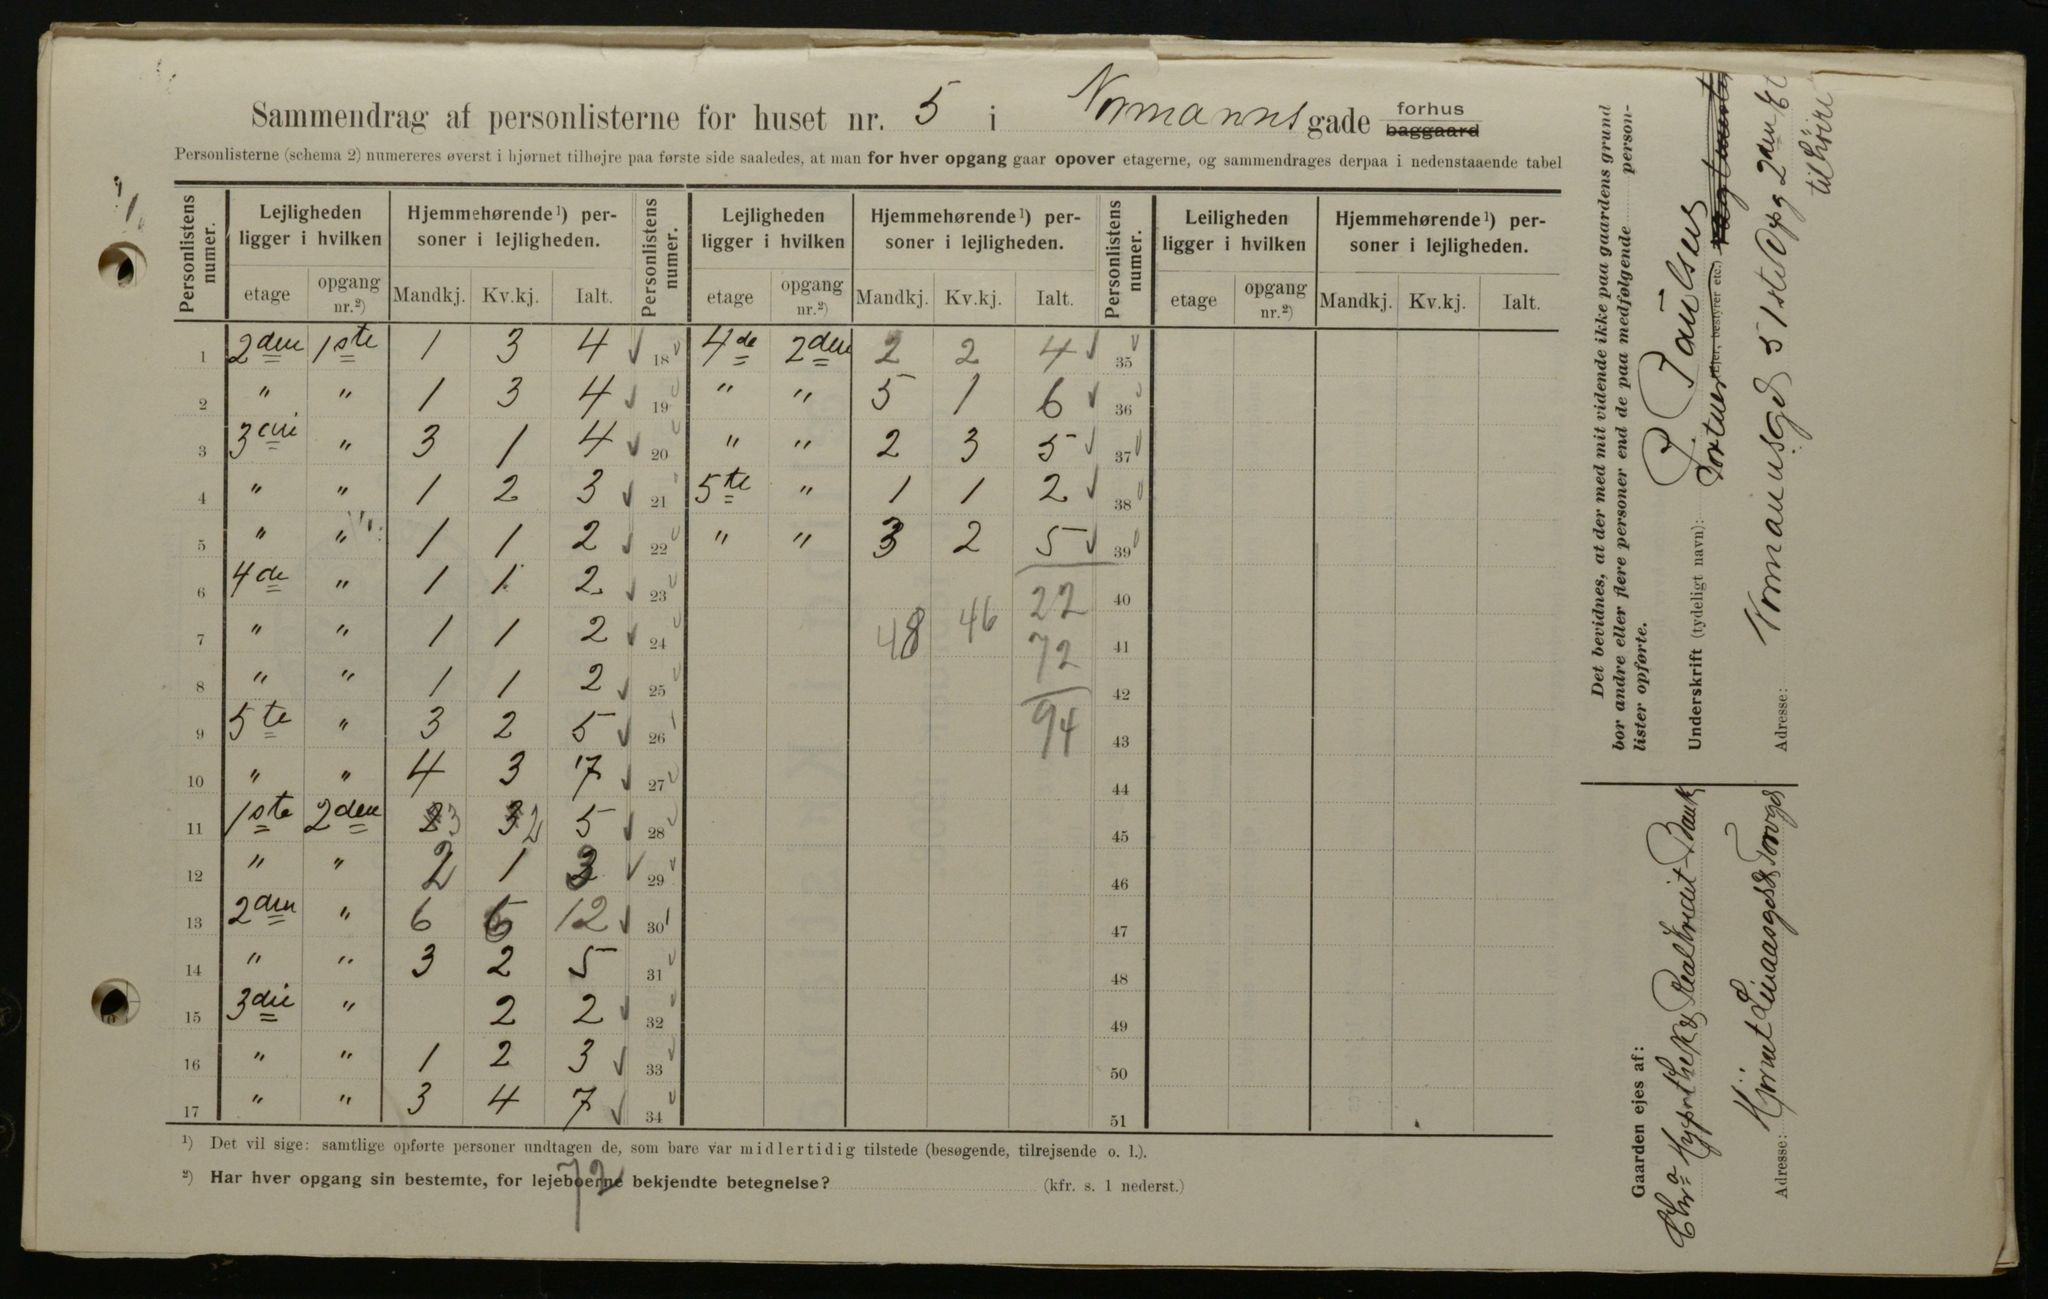 Sammendrag af personlisterne for huset nr. 5 i Normanns gade forhus baggaard
Personlisterne (schema 2) numereres øverst i hjørnet tilhøjre paa første side saaledes, at man for hver opgang gaar opover etagerne, og sammendrages derpaa i nedenstaaende tabel
Personlistens numer. Lejligheden ligger i hvilken Hjemmehørende ¹) personer i lejligheden. Personlistens numer. Lejligheden ligger i hvilken Hjemmehørende ¹) personer i lejligheden. Personlistens numer. Leiligheden ligger i hvilken Hjemmehørende ¹) personer i lejligheden.
etage opgang nr.²) Mandkj. Kv.kj. Ialt. etage opgang nr.²) Mandkj. Kv.kj. Ialt. etage opgang nr.²) Mandkj. Kv.kj. Ialt.
1 2den 1ste 1 3 4 18 4de 2den 2 2 4 35
2 " " 1 3 4 19 " " 5 1 6 36
3 3die " 3 1 4 20 " " 2 3 5 37
4 " " 1 2 3 21 5te " 1 1 2 38
5 " " 1 1 2 22 " " 3 2 5 39
6 4de " 1 1 2 23 22 40
7 " " 1 1 2 24 48 46 72 41
8 " " 1 1 2 25 42
9 5te " 3 2 5 26 94 43
10 " " 4 3 7 27 44
11 1ste 2den 3 2 5 28 45
12 " " 2 1 3 29 46
13 2den " 6 6 12 30 47
14 " " 3 2 5 31 48
15 3die " 2 2 32 49
16 " " 1 2 3 33 50
17 " " 3 4 7 34 51
¹) Det vil sige: samtlige opførte personer undtagen de, som bare var midlertidig tilstede (besøgende, tilrejsende o. l.).
²) Har hver opgang sin bestemte, for lejeboerne bekjendte betegnelse? (kfr. s. 1 nederst.)
72
Det bevidnes, at der med mit vidende ikke paa gaardens grund
bor andre eller flere personer end de paa medfølgende person-
lister opførte.
Underskrift (tydeligt navn): P. Paulsen
Portner (ejer, bestyrer etc.)
Adresse: Normansgd 5 1ste Opg 2den Et
til höire
Gaarden ejes af:
Chra Hypothek & Realkredit Bank
Adresse: Hjörnet Torvgd